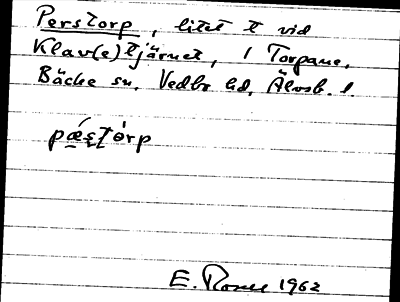 Perstorp, litet t vid
Klav(e)tjärnet, 1 Torpane,
Bäcke sn. Vedbo hd. Älvsb. l.
pæ̀s̱tórp
E. 1962